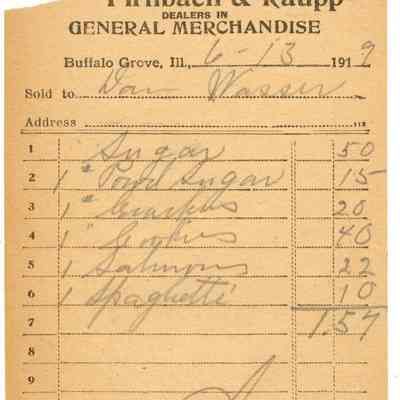 Firnbach & Raupp
DEALERS IN
GENERAL MERCHANDISE
Buffalo Grove, Ill., 6-13 1919
Sold to Dan Wasser
Address
1 Sugar 50
2 1 " Powd Sugar 15
3 1 " Crackers 20
4 1 " Cookies 40
5 1 Salmons 22
6 1 Spaghetti 10
7 1.57
8
9